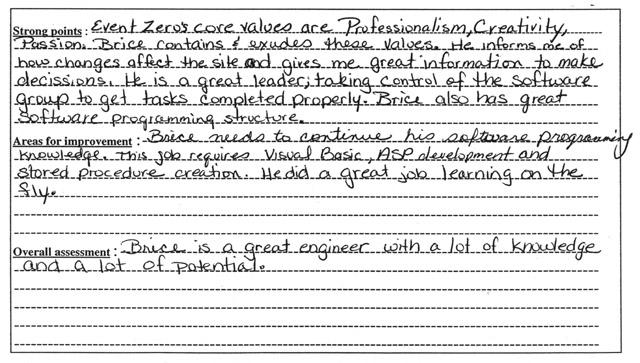 Strong points : Event Zero's core values are Professionalism, Creativity,
Passion. Brice contains & exudes these values. He informs me of
how changes affect the site and gives me great information to make
decissions. He is a great leader; taking control of the software
group to get tasks completed properly. Brice also has great
software programming structure.
Areas for improvement : Brice needs to continue his software programming
knowledge. This job requires Visual Basic, ASP development and
stored procedure creation. He did a great job learning on the
fly.
Overall assessment : Brice is a great engineer with a lot of knowledge
and a lot of potential.